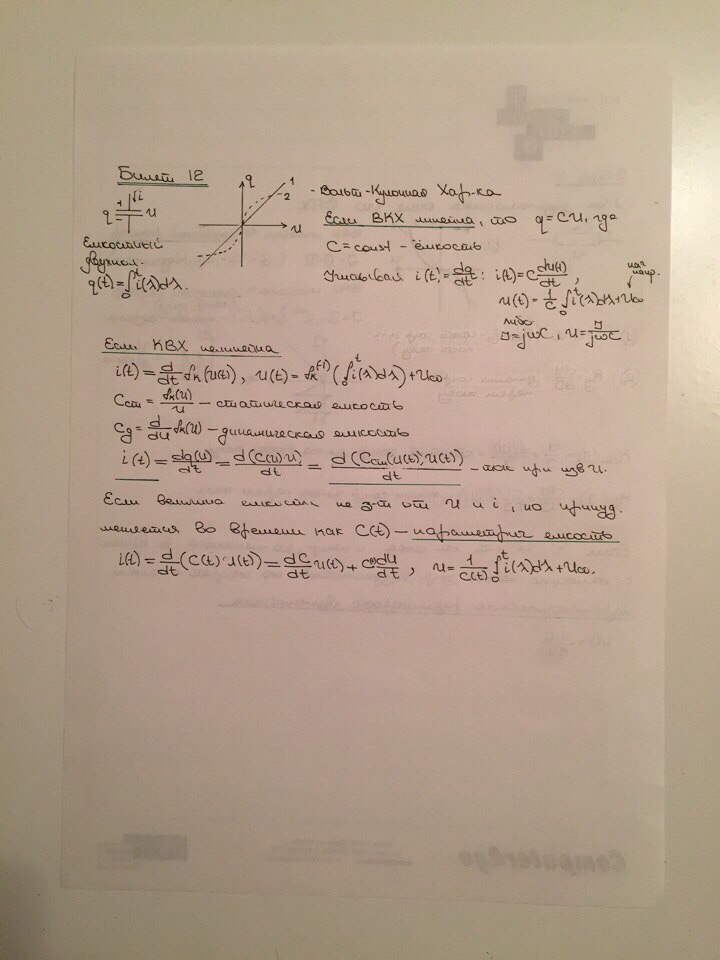 Билет 12
q
1
2
u
- Вольт-Кулонная Хар-ка
Если ВКХ линейна, то q = CU, где
C = const - ёмкость
Учитывая i(t) = dq/dt : i(t) = C du(t)/dt,
нач напр.
u(t) = 1/C ∫₀ᵗ i(λ)dλ + U₀₀
либо
I = jωC, U = I/jωC
+ ↓i
q − u
Емкостный
двухпол.
q(t) = ∫₀ᵗ i(λ)dλ.
Если КВХ нелинейна
i(t) = d/dt fk(U(t)), U(t) = fk⁽⁻¹⁾(∫₀ᵗ i(λ)dλ) + U₀₀
Cст = fk(U)/U - статическая емкость
Cд = d/dU fk(U) - динамическая емкость
i(t) = dq(U)/dt = d(C(U)·U)/dt = d(Cст(U(t))·U(t))/dt - ток при изв U.
Если величина емкости не з-т от U и i, но принуд.
меняется во времени как C(t) - параметрич емкость
i(t) = d/dt (C(t)·U(t)) = dC/dt U(t) + C(t) dU/dt , u = 1/C(t) ∫₀ᵗ i(λ)dλ + U₀₀.
ComputerAge